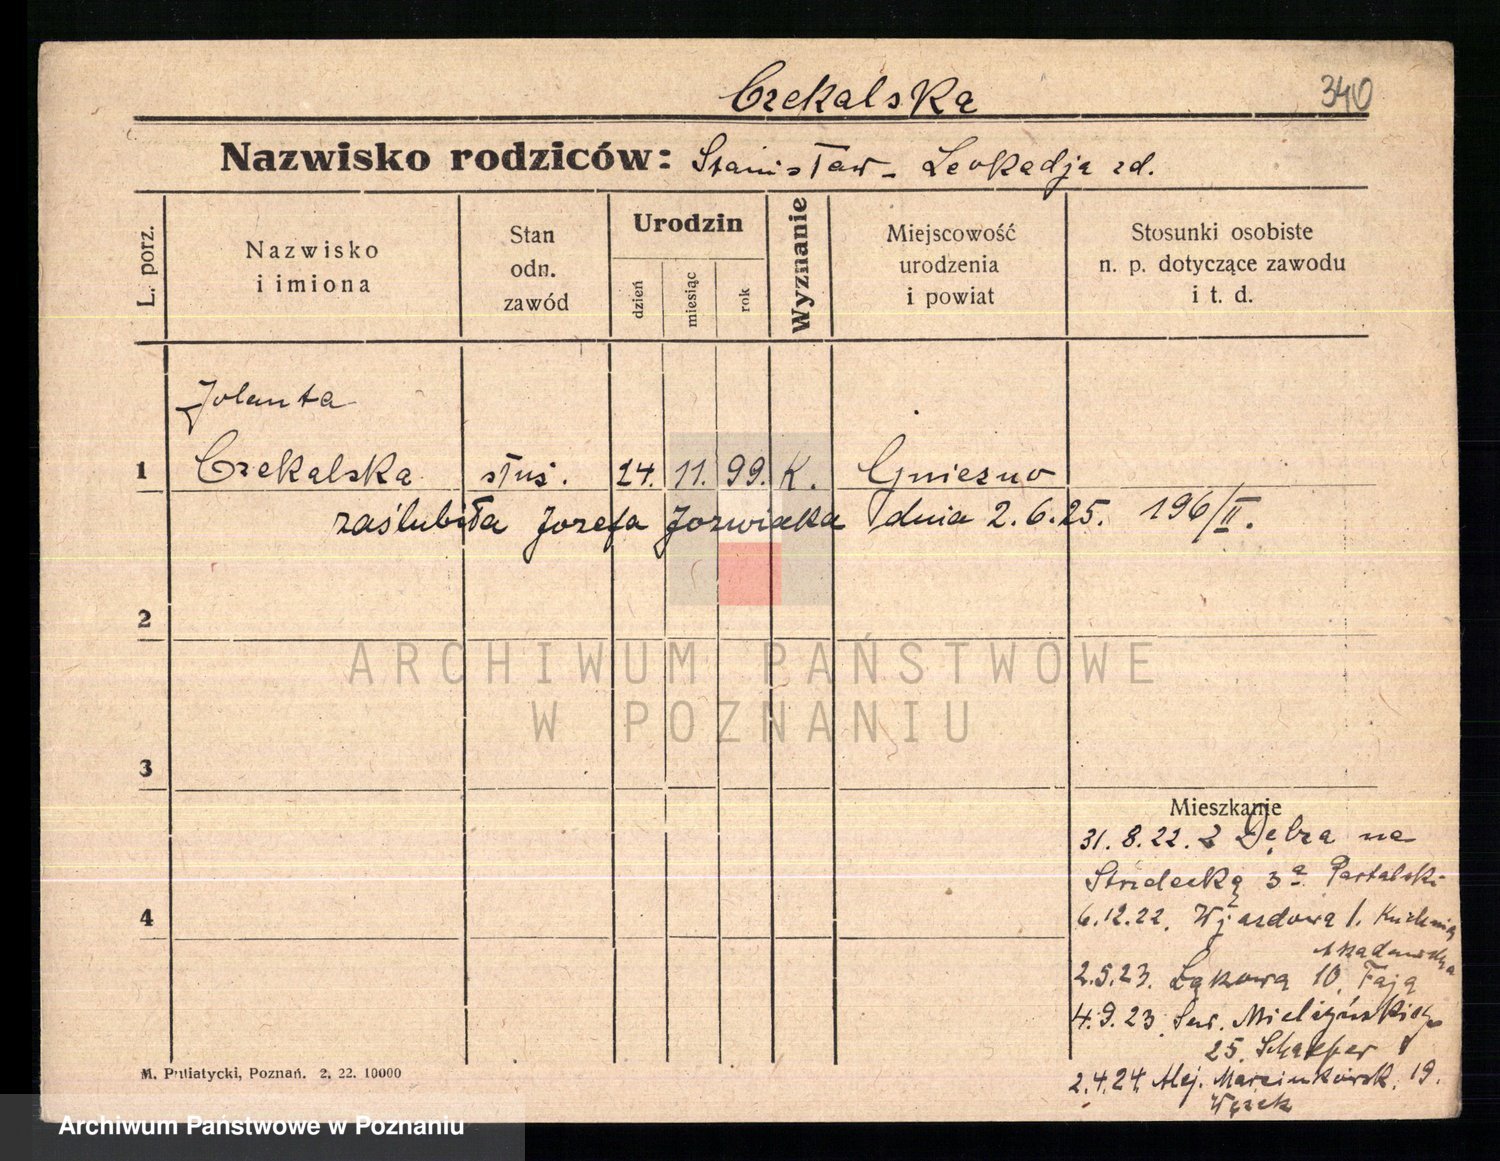 Czekalska
340
Nazwisko rodziców: Stanisław - Leokadja zd.
L. porz.
Nazwisko
i imiona
Stan
odn.
zawód
Urodzin
dzień
miesiąc
rok
Wyznanie
Miejscowość
urodzenia
i powiat
Stosunki osobiste
n. p. dotyczące zawodu
i t. d.
Jolanta
1 Czekalska służ. 24. 11. 99. K. Gniezno
zaślubiła Józefa Jozwiaka dnia 2.6.25. 196/II.
2
ARCHIWUM PAŃSTWOWE
W POZNANIU
3
Mieszkanie
31. 8. 22. z Dębza na
Strzelecką 3a Partalski
4
6.12.22. Wjazdowa 1. Kuchnia
Akademicka
2.5.23. Łąkowa 10. Fają
4.9.23 Sew. Mielżyńskiego
25. Schaefer
2.4.24. Alej. Marcinkowsk. 19.
M. Putiatycki, Poznań. 2. 22. 10000
Archiwum Państwowe w Poznaniu